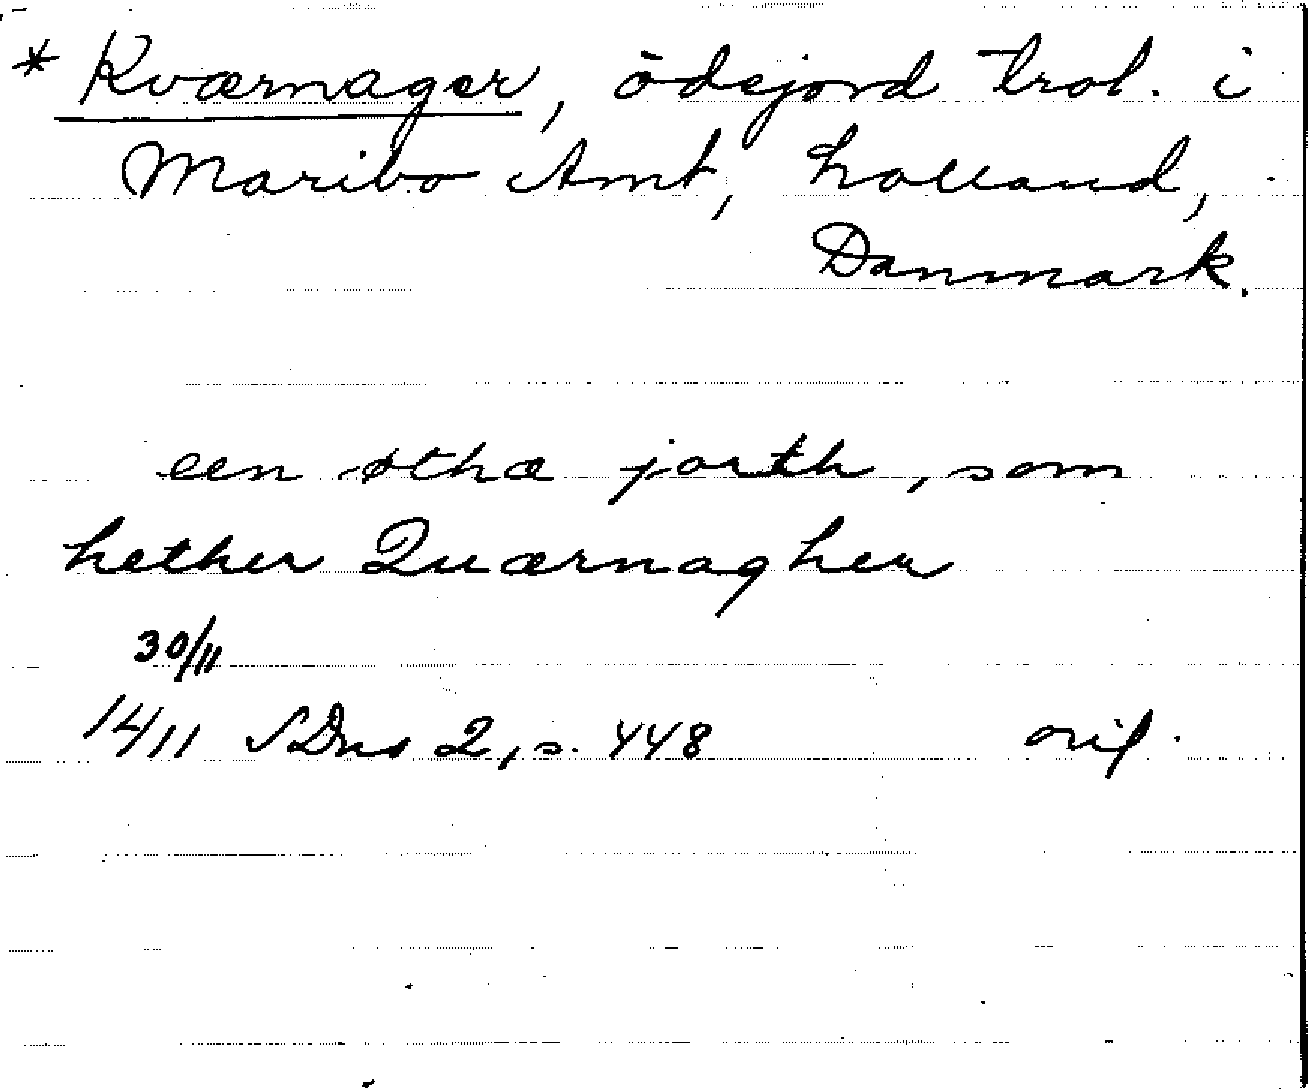 * Kværnager, ödejord trol. i
Maribo Amt, Lolland,
Danmark.
een øthæ jorth, som
hether Quærnagher
30/11
1411 SDns 2, s. 448 orig.